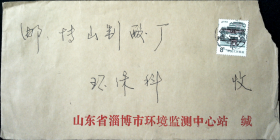 邮：博山制酸厂
环保科
收
山东省淄博市环境监测中心站 缄